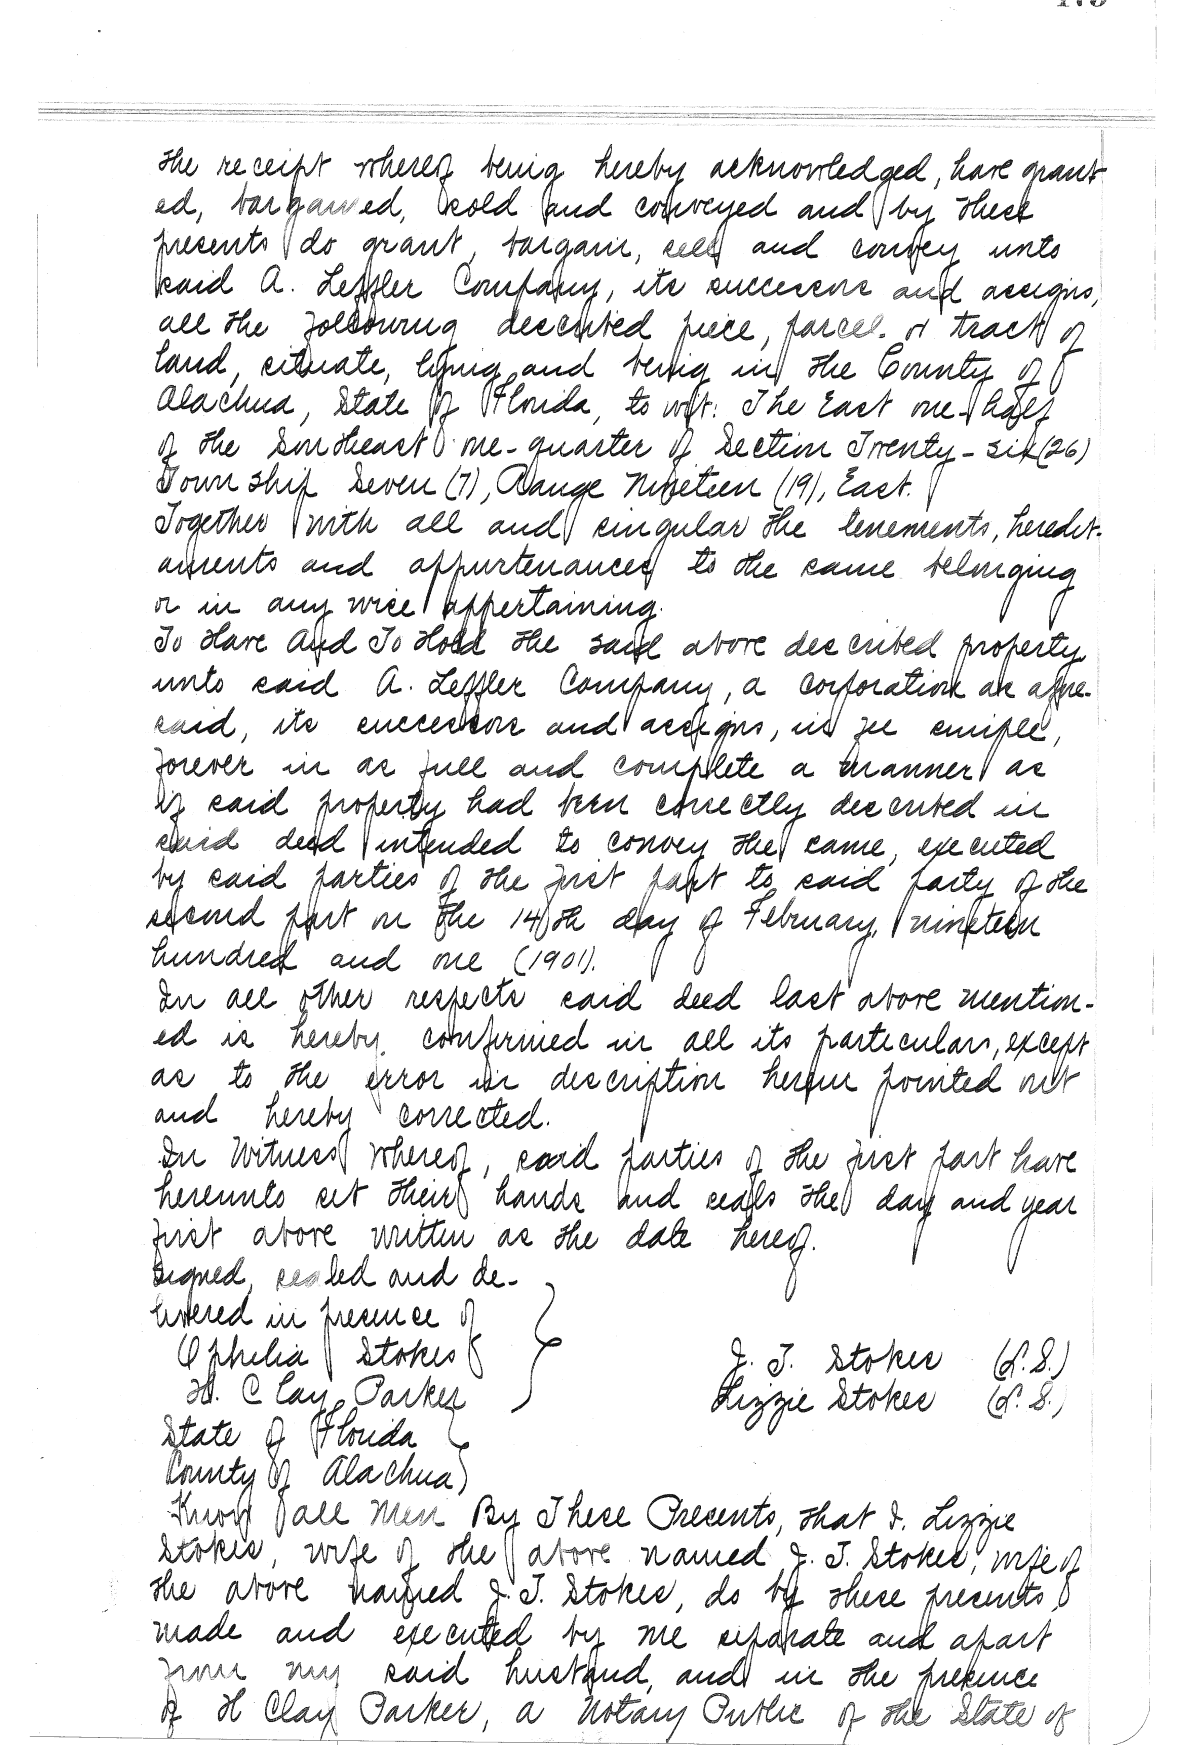 the receipt whereof being hereby acknowledged, have grant-
ed, bargained, sold and conveyed and by these
presents do grant, bargain, sell and convey unto
said A. Leffler Company, its successors and assigns,
all the following described piece, parcel or tract of
land, situate, lying and being in the County of
Alachua, State of Florida, to wit: The East one-half
of the Southeast one-quarter of Section Twenty-six (26)
Township Seven (7), Range Nineteen (19), East.
Together with all and singular the tenements, heredit-
aments and appurtenances to the same belonging
or in any wise appertaining.
To Have And To Hold the said above described property
unto said A. Leffler Company, a corporation as afore-
said, its successors and assigns, in fee simple,
forever in as full and complete a manner as
if said property had been correctly described in
said deed intended to convey the same, executed
by said parties of the first part to said party of the
second part on the 14th day of February, nineteen
hundred and one (1901).
In all other respects said deed last above mention-
ed is hereby confirmed in all its particulars, except
as to the error in description herein pointed out
and hereby corrected.
In Witness Whereof, said parties of the first part have
hereunto set their hands and seals the day and year
first above written as the date hereof.
Signed, sealed and de-
livered in presence of
Ophelia Stokes J. T. Stokes (L.S.)
H. Clay Parker Lizzie Stokes (L.S.)
State of Florida
County of Alachua
Know all Men By These Presents, that I, Lizzie
Stokes, wife of the above named J. T. Stokes, wife of
the above named J. T. Stokes, do by these presents,
made and executed by me separate and apart
from my said husband, and in the presence
of H Clay Parker, a Notary Public of the State of